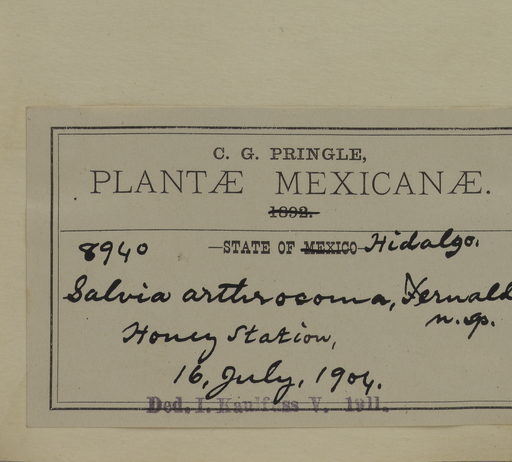 C. G. PRINGLE,
PLANTÆ MEXICANÆ.
1892.
8940 —STATE OF MEXICO— Hidalgo.
Salvia arthrocoma, Fernald
n. sp.
Honey Station,
16, July, 1904.
Ded. I. Kaulfuss V. 1911.